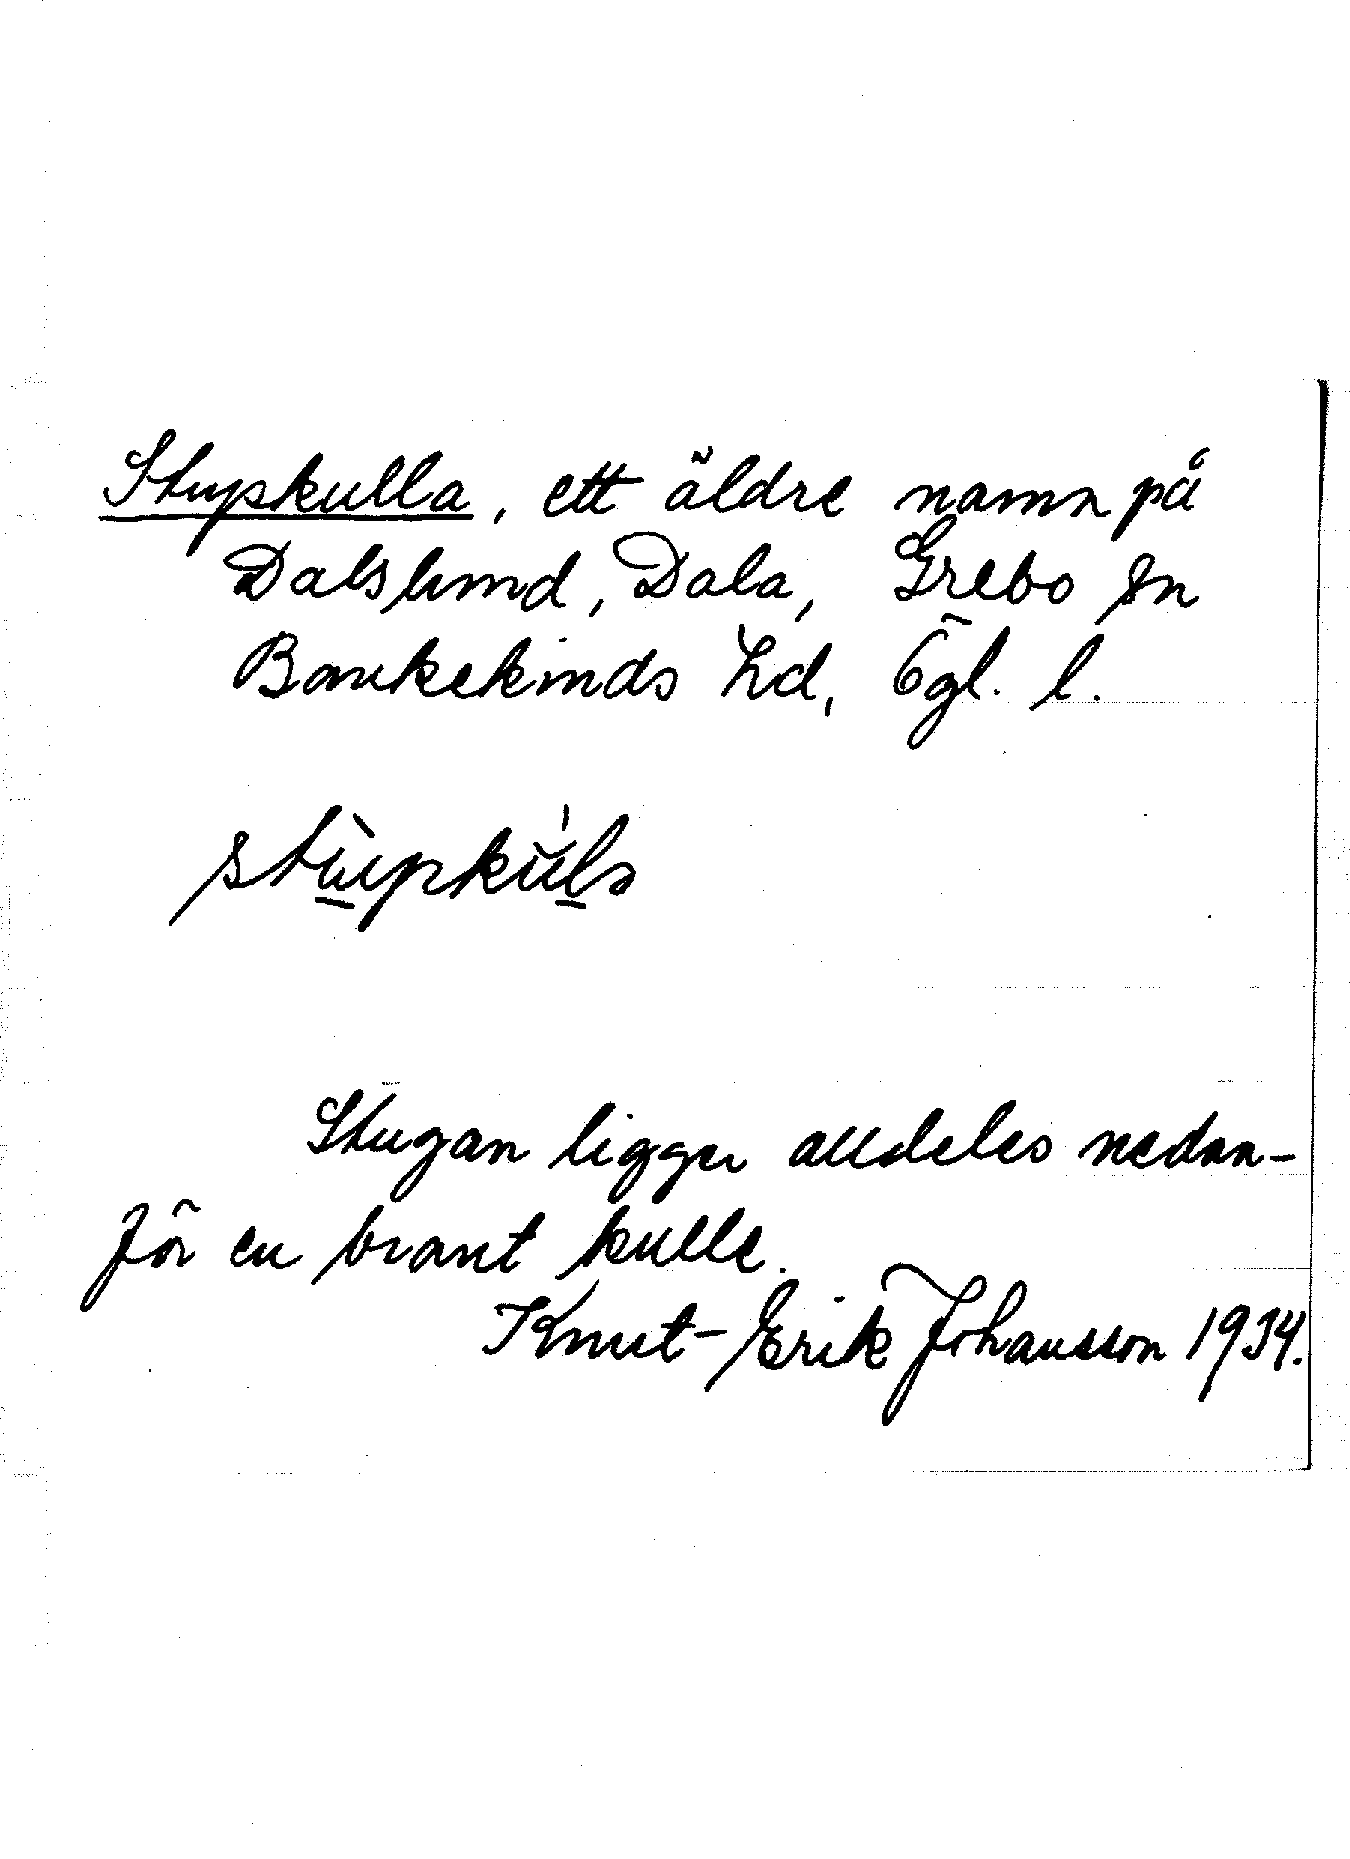 Stupkulla, ett äldre namn på
Dalslund, Dala, Grebo sn
Bankekinds hd, Ögl. l.
Stugan ligger alldeles nedan-
för en brant kulle.
Knut-Erik Johansson 1934.